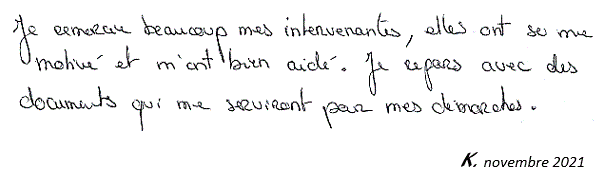 Je remercie beaucoup mes intervenantes, elles ont su me
motivé et m'ont bien aidé. Je repars avec des
documents qui me serviront pour mes démarches.
K. novembre 2021